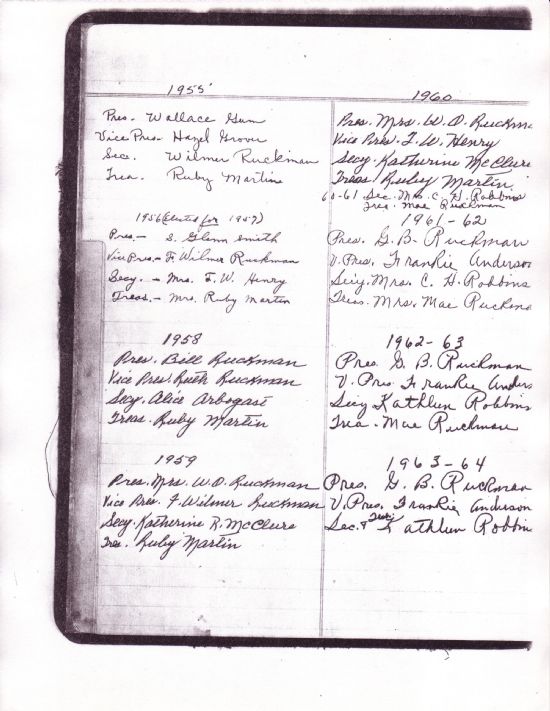 1955
Pres. Wallace Gum
Vice Pres. Hazel Grover
Sec. Wilmer Ruckman
Trea. Ruby Martin
1956 (Elected for 1957)
Pres. - S. Glenn Smith
Vice Pres. - F. Wilmer Ruckman
Secy. - Mrs. F. W. Henry
Treas. - Mrs. Ruby Martin
1958
Pres. Bill Ruckman
Vice Pres. Ruth Ruckman
Secy. Alice Arbogast
Treas. Ruby Martin
1959
Pres. Mrs. W. O. Ruckman
Vice Pres. F. Wilmer Ruckman
Secy. Katherine R. McClure
Tres. Ruby Martin
1960
Pres. Mrs. W. O. Ruckm
Vice Pres. F. W. Henry
Secy. Katherine McClure
Treas Ruby Martin
60-61 Sec. Mrs. C. H. Robbins
Trea. Mae Ruckman
1961-62
Pres. G. B. Ruckman
V. Pres. Frankie Anderson
Secy. Mrs. C. H. Robbins
Treas. Mrs. Mae Ruckma
1962-63
Pres. G. B. Ruckman
V. Pres. Frankie Anders
Secy Kathlun Robbins
Trea. Mae Ruckman
1963-64
Pres. G. B. Ruckman
V. Pres. Frankie Anderson
Sec. & Kathlun Robbin